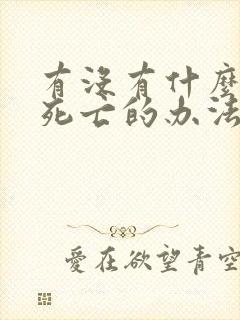 有没有什麼
死亡的办法
愛在欲望青空